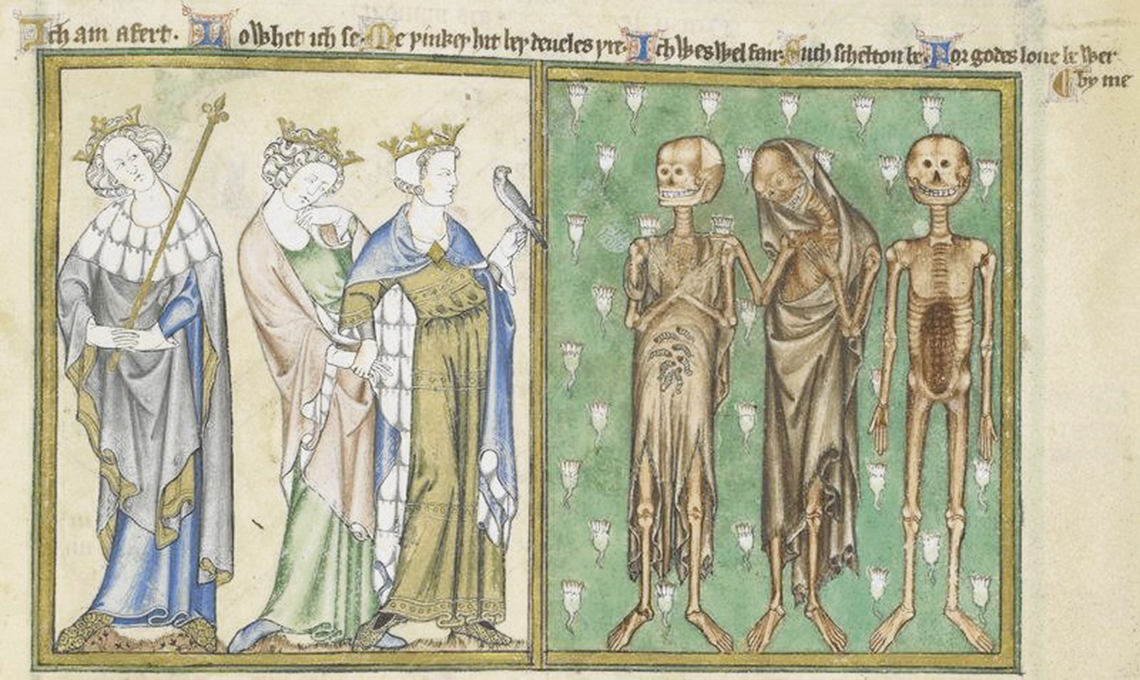 Ich am afert. Lo whet ich se. Me þinkeþ hit bey deueles þre. Ich wes wel fair. Such scheltou be. For godes loue be wer
by me